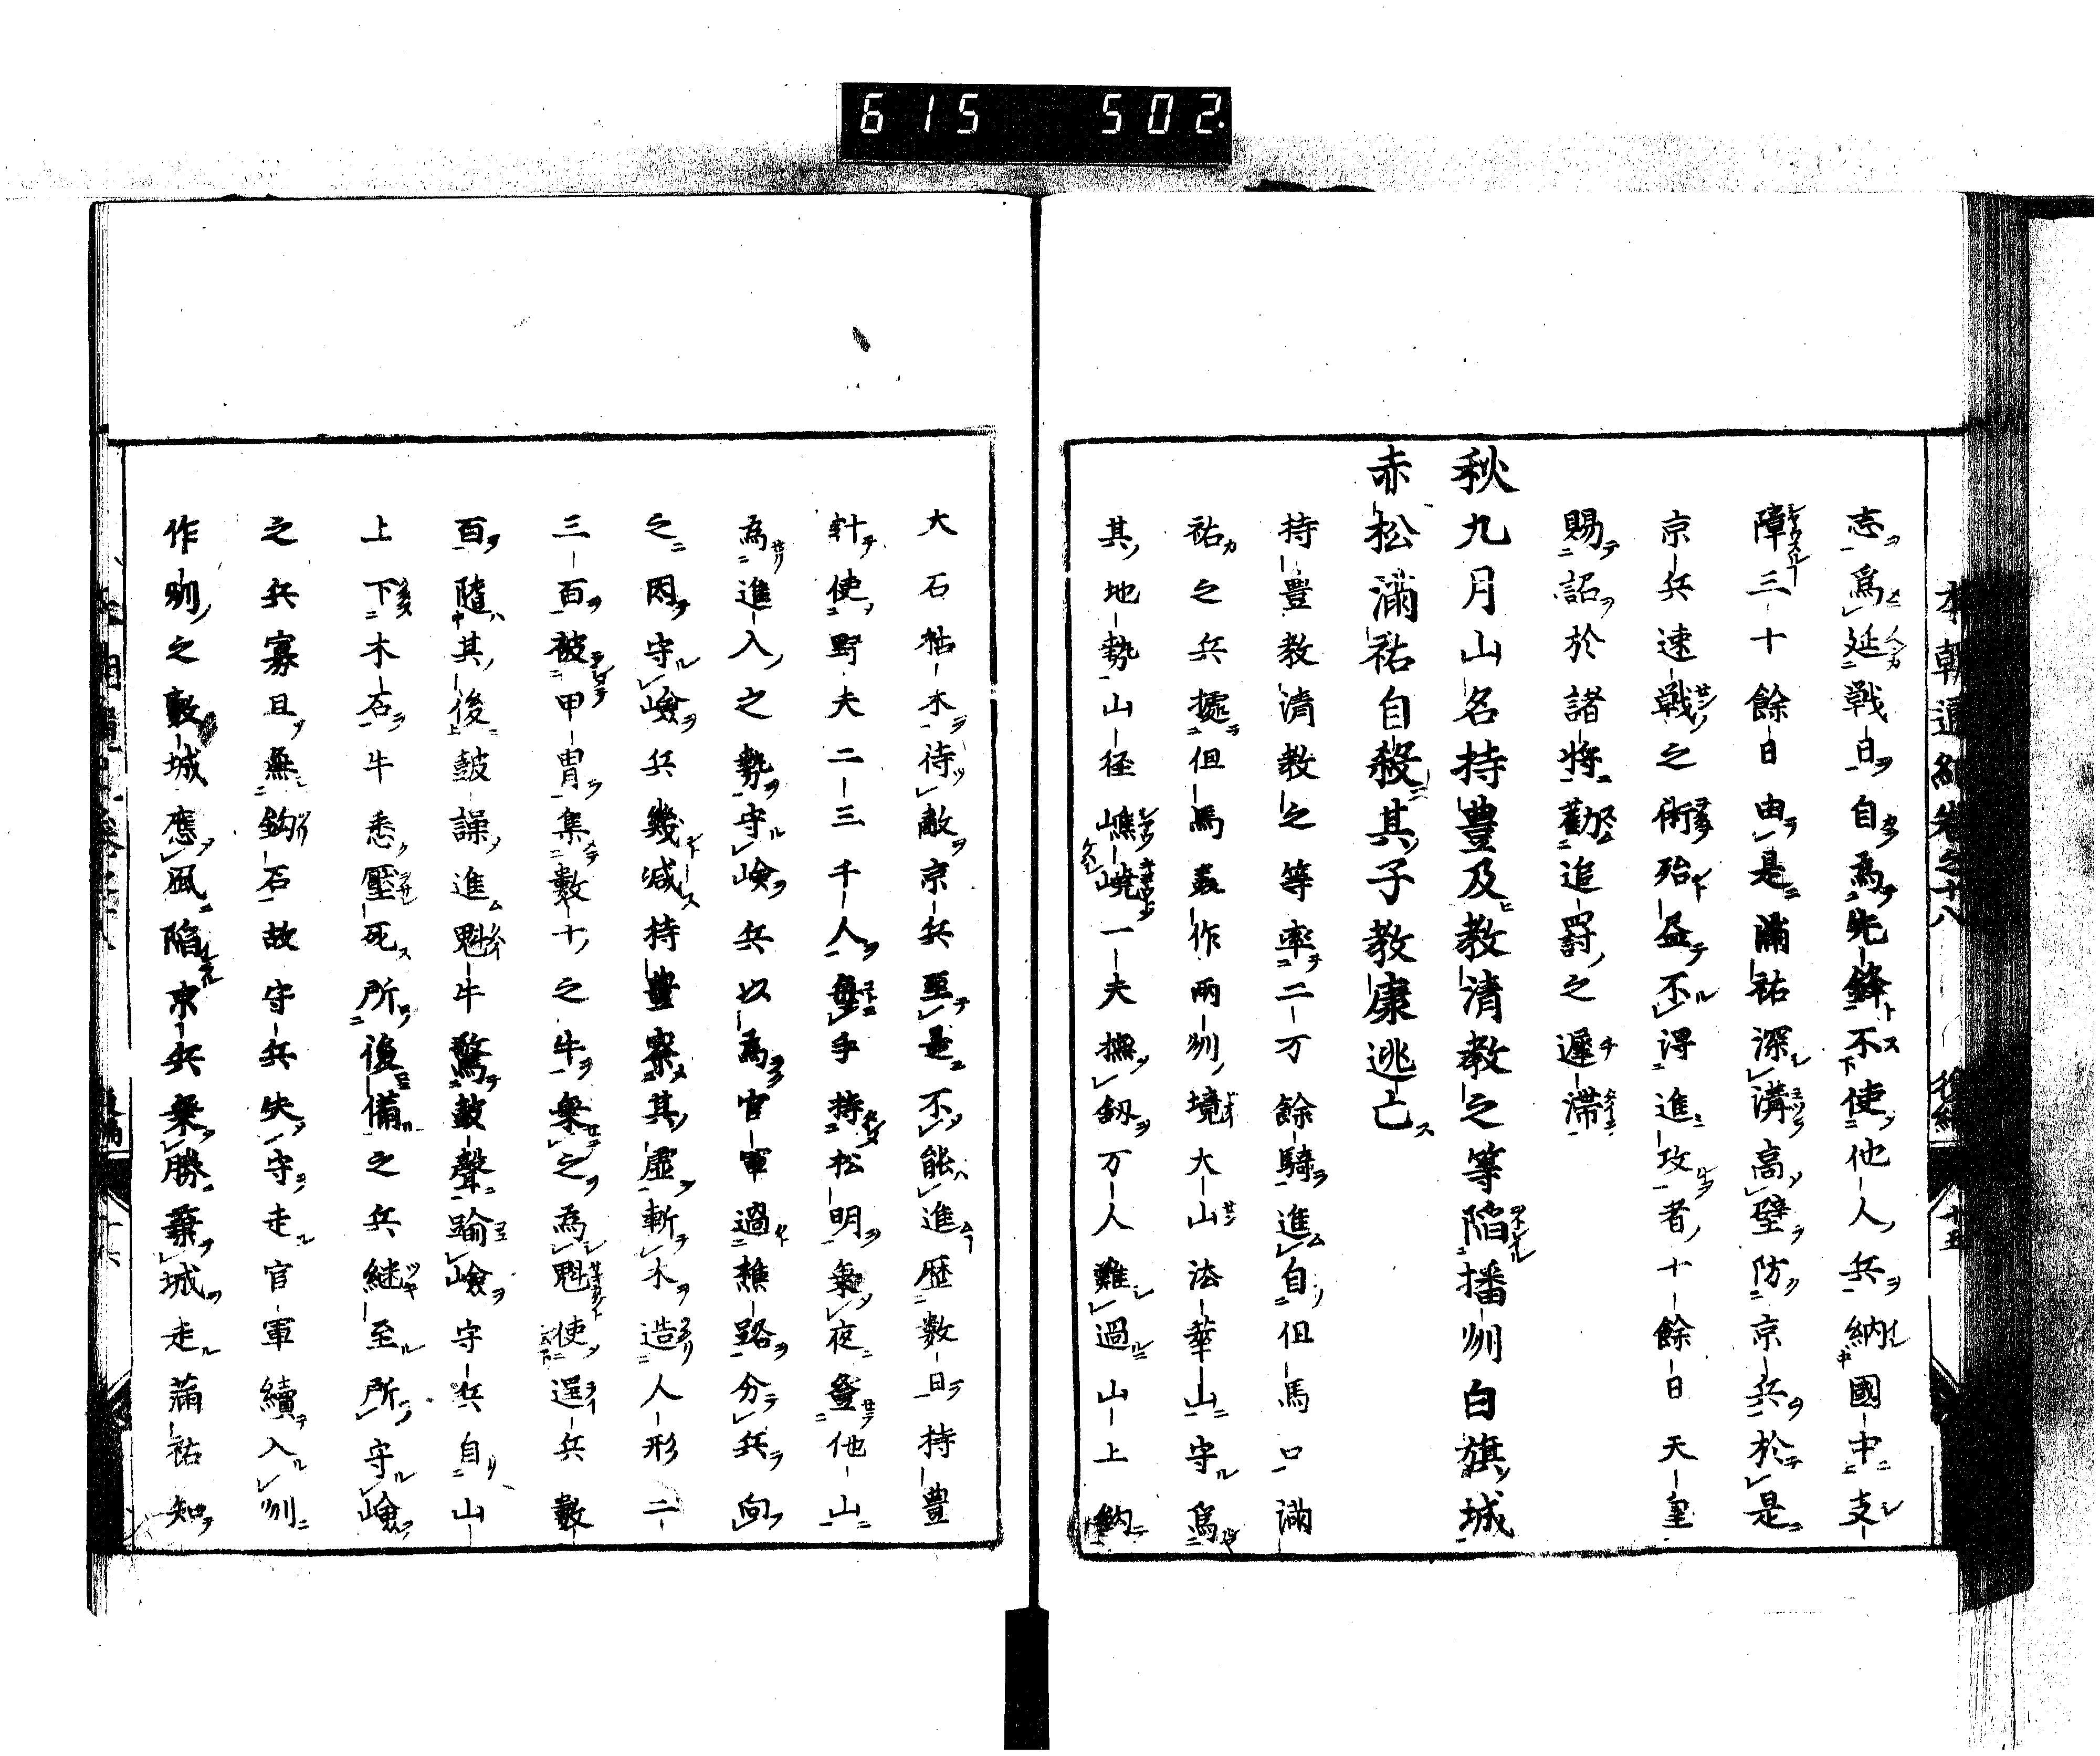 615 502.
本朝通紀卷之十八 後編 十五
志爲延戰日自為先鋒不使他人兵納國中支
障三十餘日由是滿祐深溝高壁防京兵於是
京兵速戰之術殆盡不得進攻者十餘日天皇
賜詔於諸將勸追罸之遲滯
秋九月山名持豊及教清教之等陷播州白旗城
赤松滿祐自殺其子教康逃亡
持豊教清教之等率二万餘騎進自但馬口滿
祐之兵據但馬作兩州境大山法華山守焉
其地勢山径嶕嶢一夫撫劔万人難過山上納
大石枯木待敵京兵至是不能進歴數日持豊
計使野夫二三千人每手持松明乘夜登他山
為進入之勢守嶮兵以為官軍過樵路分兵向
之因守嶮兵幾減持豊察其虛斬木造人形二
三百被甲冑集數十之牛乘之為魁使逞兵數
百隨其後鼓譟進魁牛驚鼓聲踰嶮守兵自山
上下木石牛悉壓死所後備之兵継至所守嶮
之兵寡且無鈎石故守兵失守走官軍續入州
作州之敵城應風陷京兵乘勝棄城走滿祐知